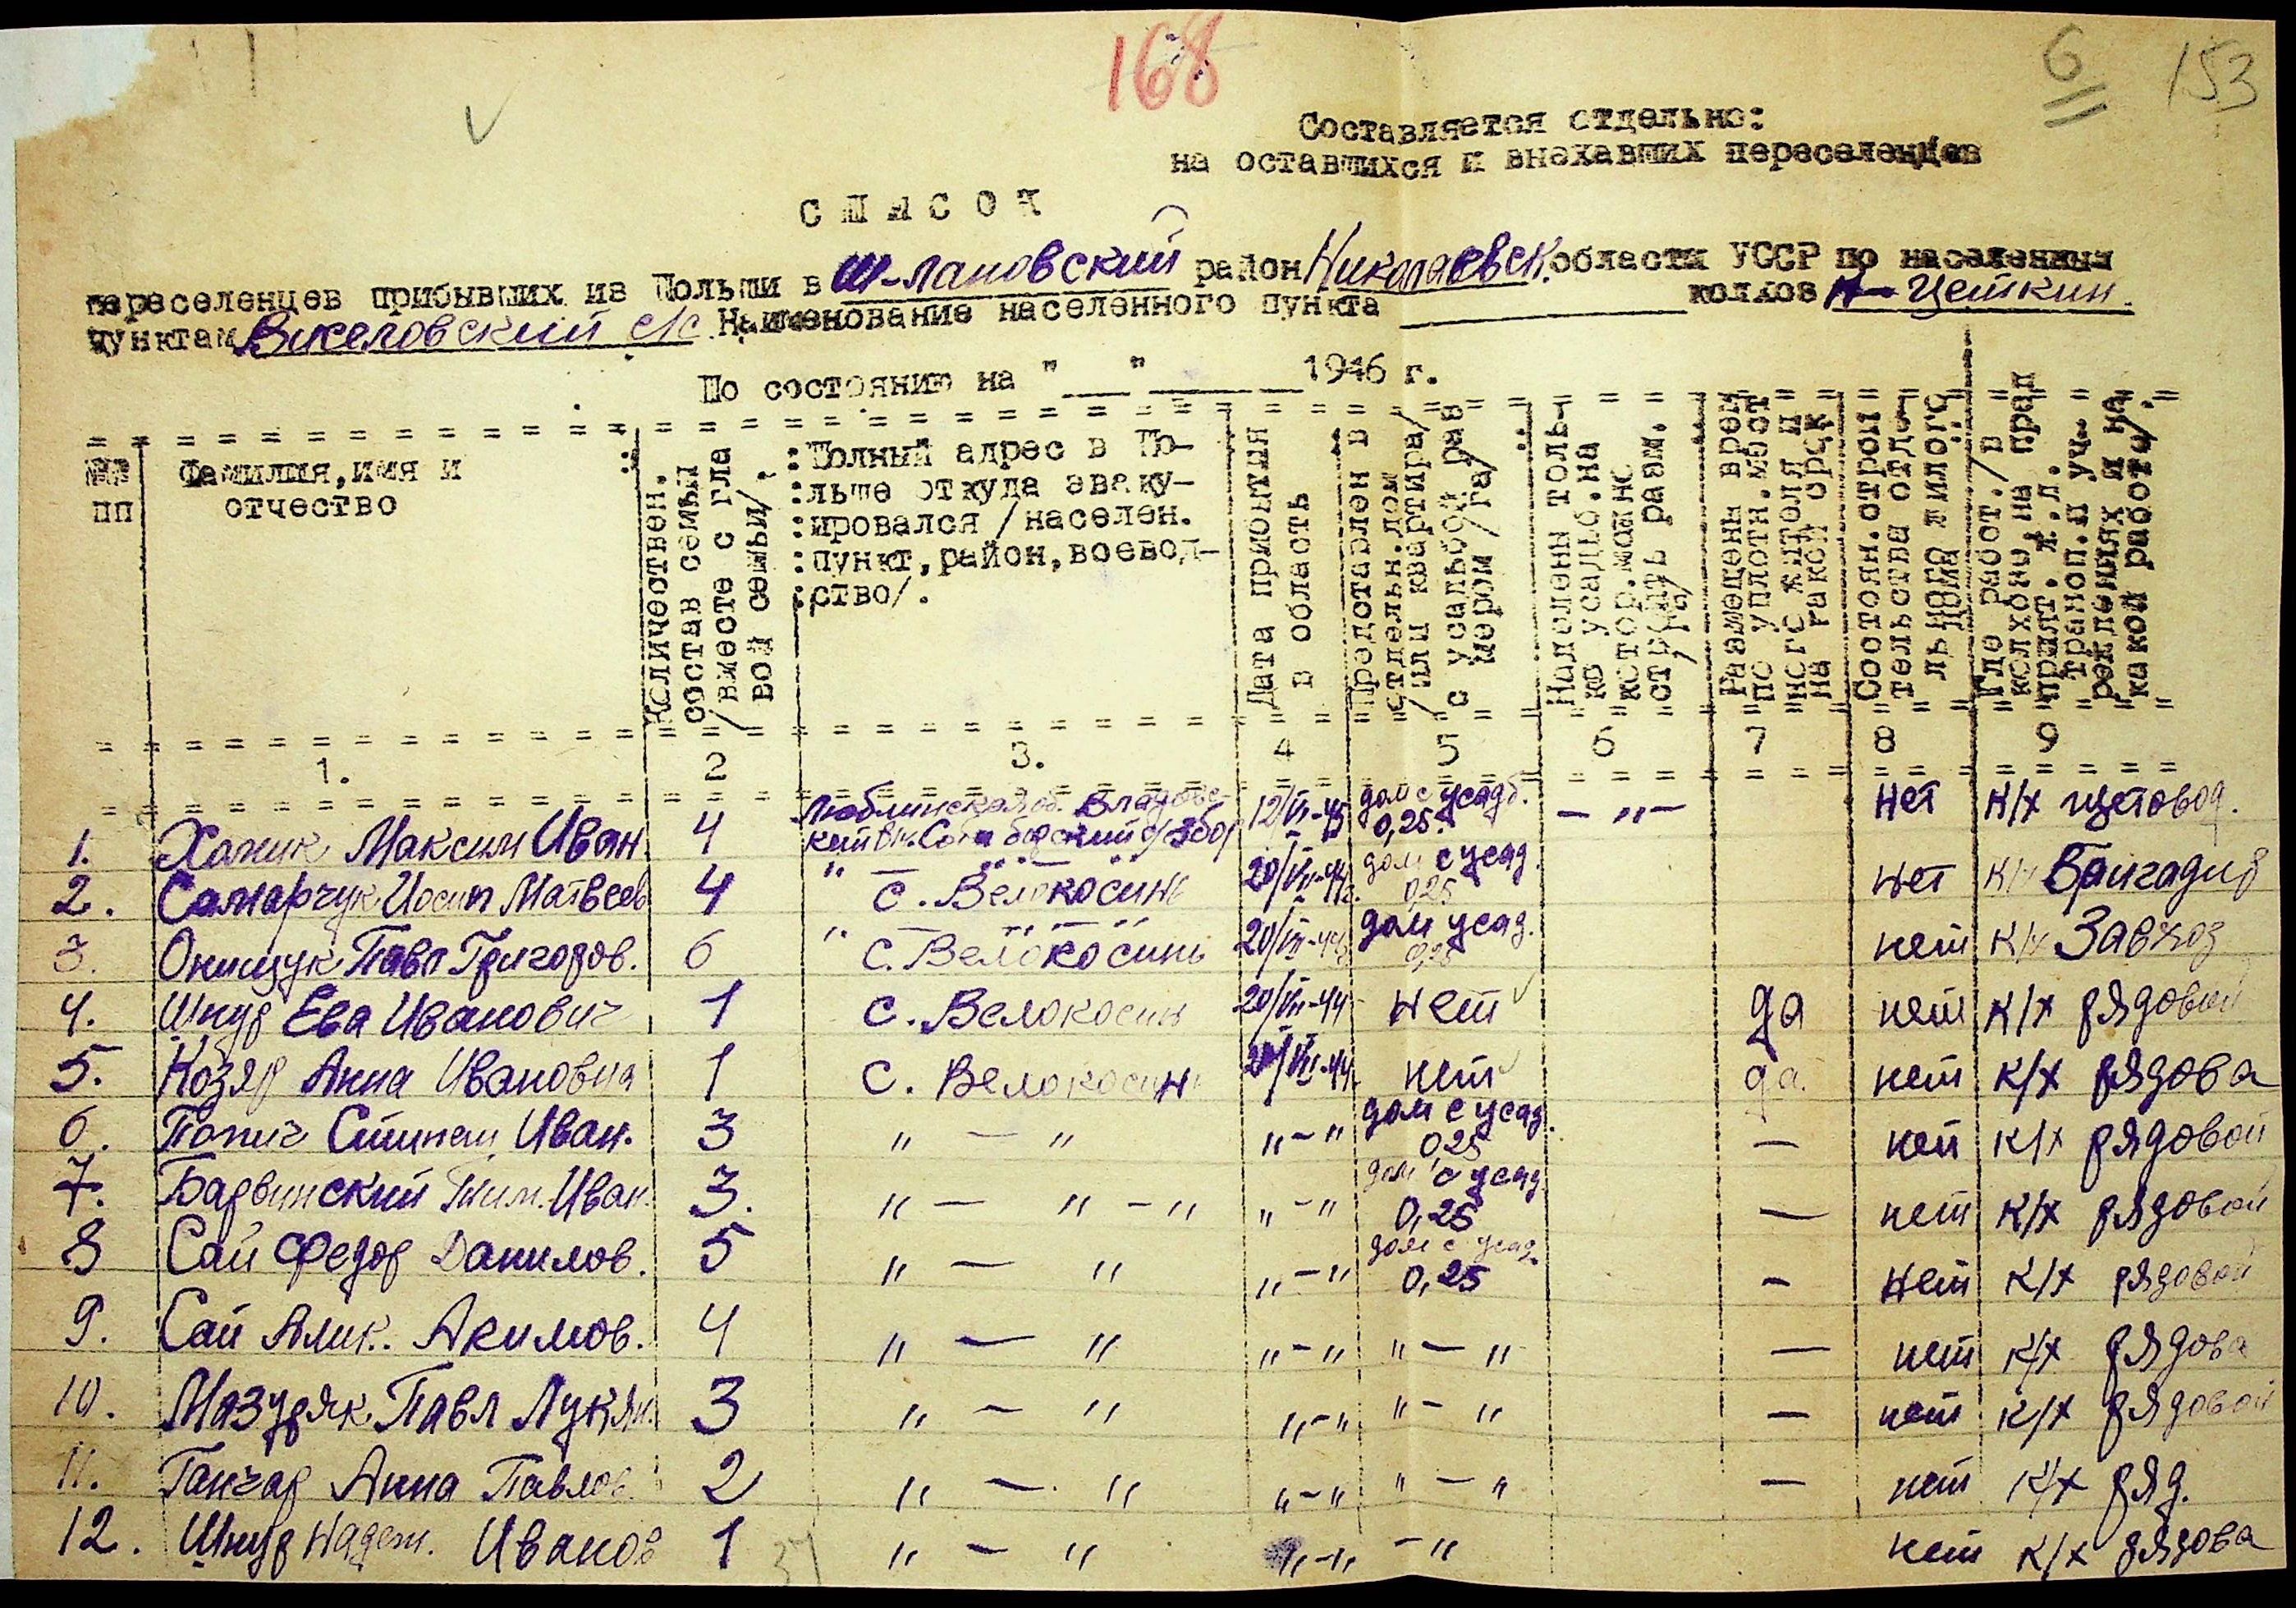 168
6
153
Составляется отдельно:
на оставшихся и внехавших переселенцев
СПИСОК
переселенцев прибывших из Польши в Ш-Лановский район Николаевск. области УССР по населенным
пунктам с/с Наименование населенного пункта колхоз Цеткин.
По состоянию на " " 1946 г.
№№ пп
Фамилия, имя и отчество
Количествен. состав семьи /вместе с главой семьи/.
Полный адрес в Польше откуда эвакуировался /населен. пункт, район, воеводство/.
Дата прибытия в область
Предоставлен в отдельн.дом /или квартира/ с усадьбой размером /га/
Наделены только усадьб. на котор. можно строить
Размещены врем по уплотн. мест
Состоян. строительства отдельного жилого дома
Где работ. /в колхозе, на пред
на какой работе/.
1. 2 3. 4 5 6 7 8 9
1. Максим Иван. 4 Люблинская об. 12/VI-45 дом с усадб. 0,25. — " — нет к/х щетовод.
2. Самарчук Иосип Матвеев 4 " — " — " с. Велокосинь 20/VII-44г. дом с усад. 0,25 нет к/х Бригадир
3. Онищук Павл Григоров. 6 " — " — " с. Велокосинь 20/VII-44 дом усад. 0,25 нет к/х Завхоз
4. Шнур Ева Иванович 1 с. Велокосин 20/VII-44 нет да нет к/х рядовой
5. Козяр Анна Ивановна 1 с. Велокосинь 20/VII-44 нет да. нет к/х рядова
6. Иван. 3 " — " " — " дом с усад. 0,25 — нет к/х рядовой
7. Барвинский Тим. Иван. 3. " — " — " " — " дом с усад. 0,25 — нет к/х рядовой
8 Сай Федор Данилов. 5 " — " " — " дом с усад. 0,25 — нет к/х рядовой
9. Сай Акимов. 4 " — " " — " " — " — нет к/х рядова
10. Мазуряк Павл Лукян. 3 " — " " — " " — " — нет к/х рядовой
11. Ганчар Анна Павлов. 2 " — " " — " " — " — нет к/х ряд.
12. Шнур Надеж. Иванов 1 37 " — " " — " — " нет к/х рядова